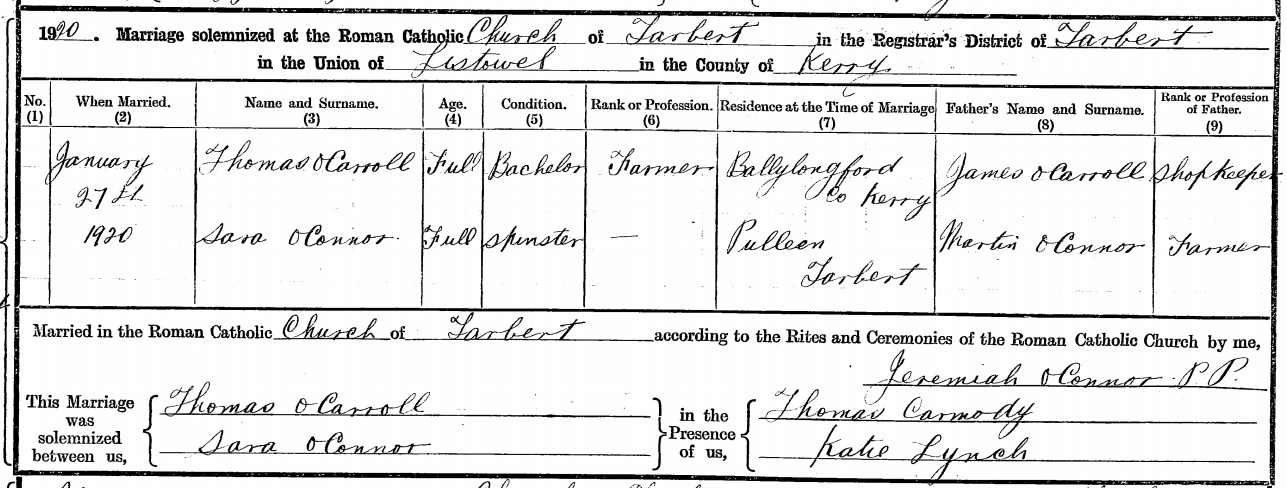 1920. Marriage solemnized at the Roman Catholic Church of Tarbert in the Registrar's District of Tarbert
in the Union of Listowel in the County of Kerry
No. When Married. Name and Surname. Age. Condition. Rank or Profession. Residence at the Time of Marriage Father's Name and Surname. Rank or Profession of Father.
(1) (2) (3) (4) (5) (6) (7) (8) (9)
January Thomas O Carroll Full Bachelor Farmer Ballylongford James O Carroll Shopkeeper
27th Co Kerry
1920 Sara O Connor Full Spinster — Pulleen Martin O Connor Farmer
Tarbert
Married in the Roman Catholic Church of Tarbert according to the Rites and Ceremonies of the Roman Catholic Church by me,
Jeremiah O Connor P.P.
This Marriage was solemnized between us,
Thomas O Carroll
Sara O Connor
in the Presence of us,
Thomas Carmody
Katie Lynch